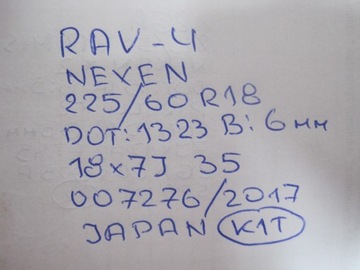 RAV-4
NEXEN
225/60 R18
DOT: 1323 В: 6мм
18x7J 35
007276/2017
JAPAN K1T